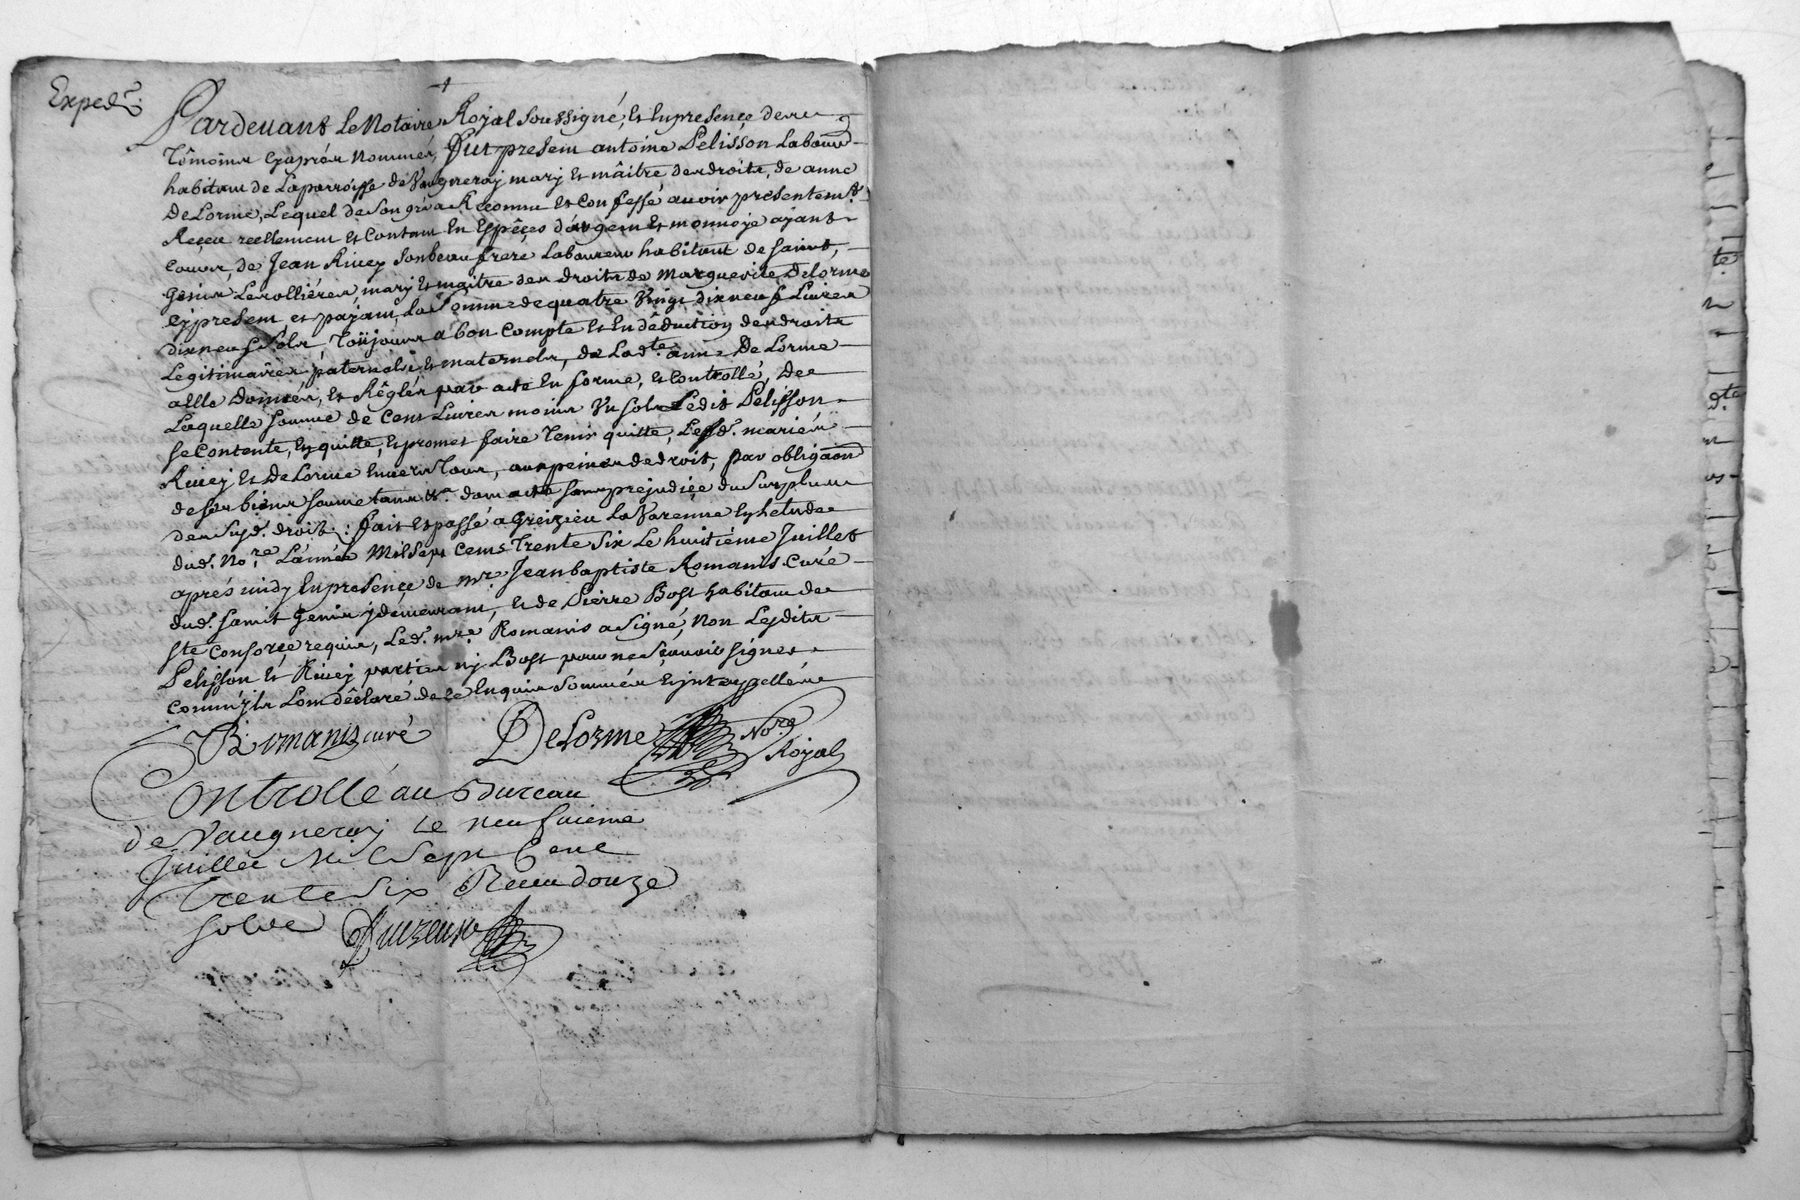 Exped.
Pardevant Le Notaire Royal soussigné, et En presence des
Témoins cyaprés nommés, fut present antoine Pelisson Laboureur
habitant de Laparroisse de Vaugneray mary et mâitre des droits, de anne
DeLorme, Lequel de son gré a Reconnu et Confessé avoir presentemt.
Reçeu reellement et Contant En Espêces d'argent et monnoye ayant
Cours, de Jean Rivey son beau frere Laboureur habitant de saint,
Genis Lerolliéres mary et maitre des droits de Marguerite Delorme
cypresent et payant, La somme de quatre Vingt dix neuf Livres
dix neuf sols, Toüjours a bon Compte et En dêduction des droits
Legitimaires paternels et maternels, de Ladte. anne DeLorme
a Elle Donnés, et Rêglés par acte En forme, et Controllé, De
Laquelle somme de Cent Livres moins Vn sols Ledit Pelisson
se Contente, En quitte, et promet faire Tenir quitte, Lesd. mariés
Rivey et DeLorme Envers Tous, aux peines de droit, par obligaon
de ses biens soumettans &a. dont acte sans prejudice du surplus
des susd. droits; fait et passé a Greizieu La Varenne En Letude
dud. Nore. L'année Mil Sept Cents Trente Six Le huitiéme Juillet
aprés midy En presence de mr. Jean baptiste Romanis Curé
dud. saint Genis y demeurant, et de Pierre Bost habitant de
ste Consorçe requis, Led. mre. Romanis a signé, Non Lesdits
Pelisson et Rivey parties ny Bost pour ne sçavoir signer
Comm'jls L'ont dêclaré de ce Enquis sommés et jnterpellés
Romanis curé DeLorme Nore. Royal
Controllé au Bureau
de Vaugneray Le neufvieme
Juillet Mil Sept Cent
Trente Six Receu douze
solds
1736